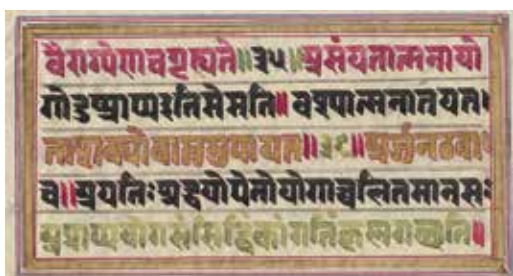 वैराग्येणचगृह्यते॥३५॥असंयतात्मनायो
गोदुष्प्राप्यइतिमेमति॥ वश्यात्मनातुयत
ताशक्योवाप्तुमुपायत॥३६॥अर्जुनउवा
च॥अयतिःश्रद्धयोपेतोयोगाच्चलितमानसः
अप्राप्ययोगसंसिद्धिंकांगतिंकृष्णगच्छति॥